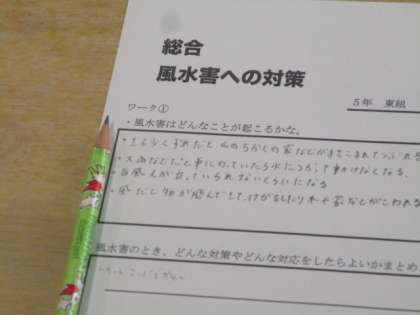 総合
風水害への対策
5年 東組
ワーク①
・風水害はどんなことが起こるかな。
・土しゃくずれだと、山のちかくの家などがまきこまれてつぶれる
・大雨などだと車にのっていたら水につかって動かなくなる。
・台風 人が立っていられないくらいになる
・風だと物が飛んできて、けがをしたり木や家などがこわれる
風水害のとき、どんな対策やどんな対応をしたらよいかまとめ